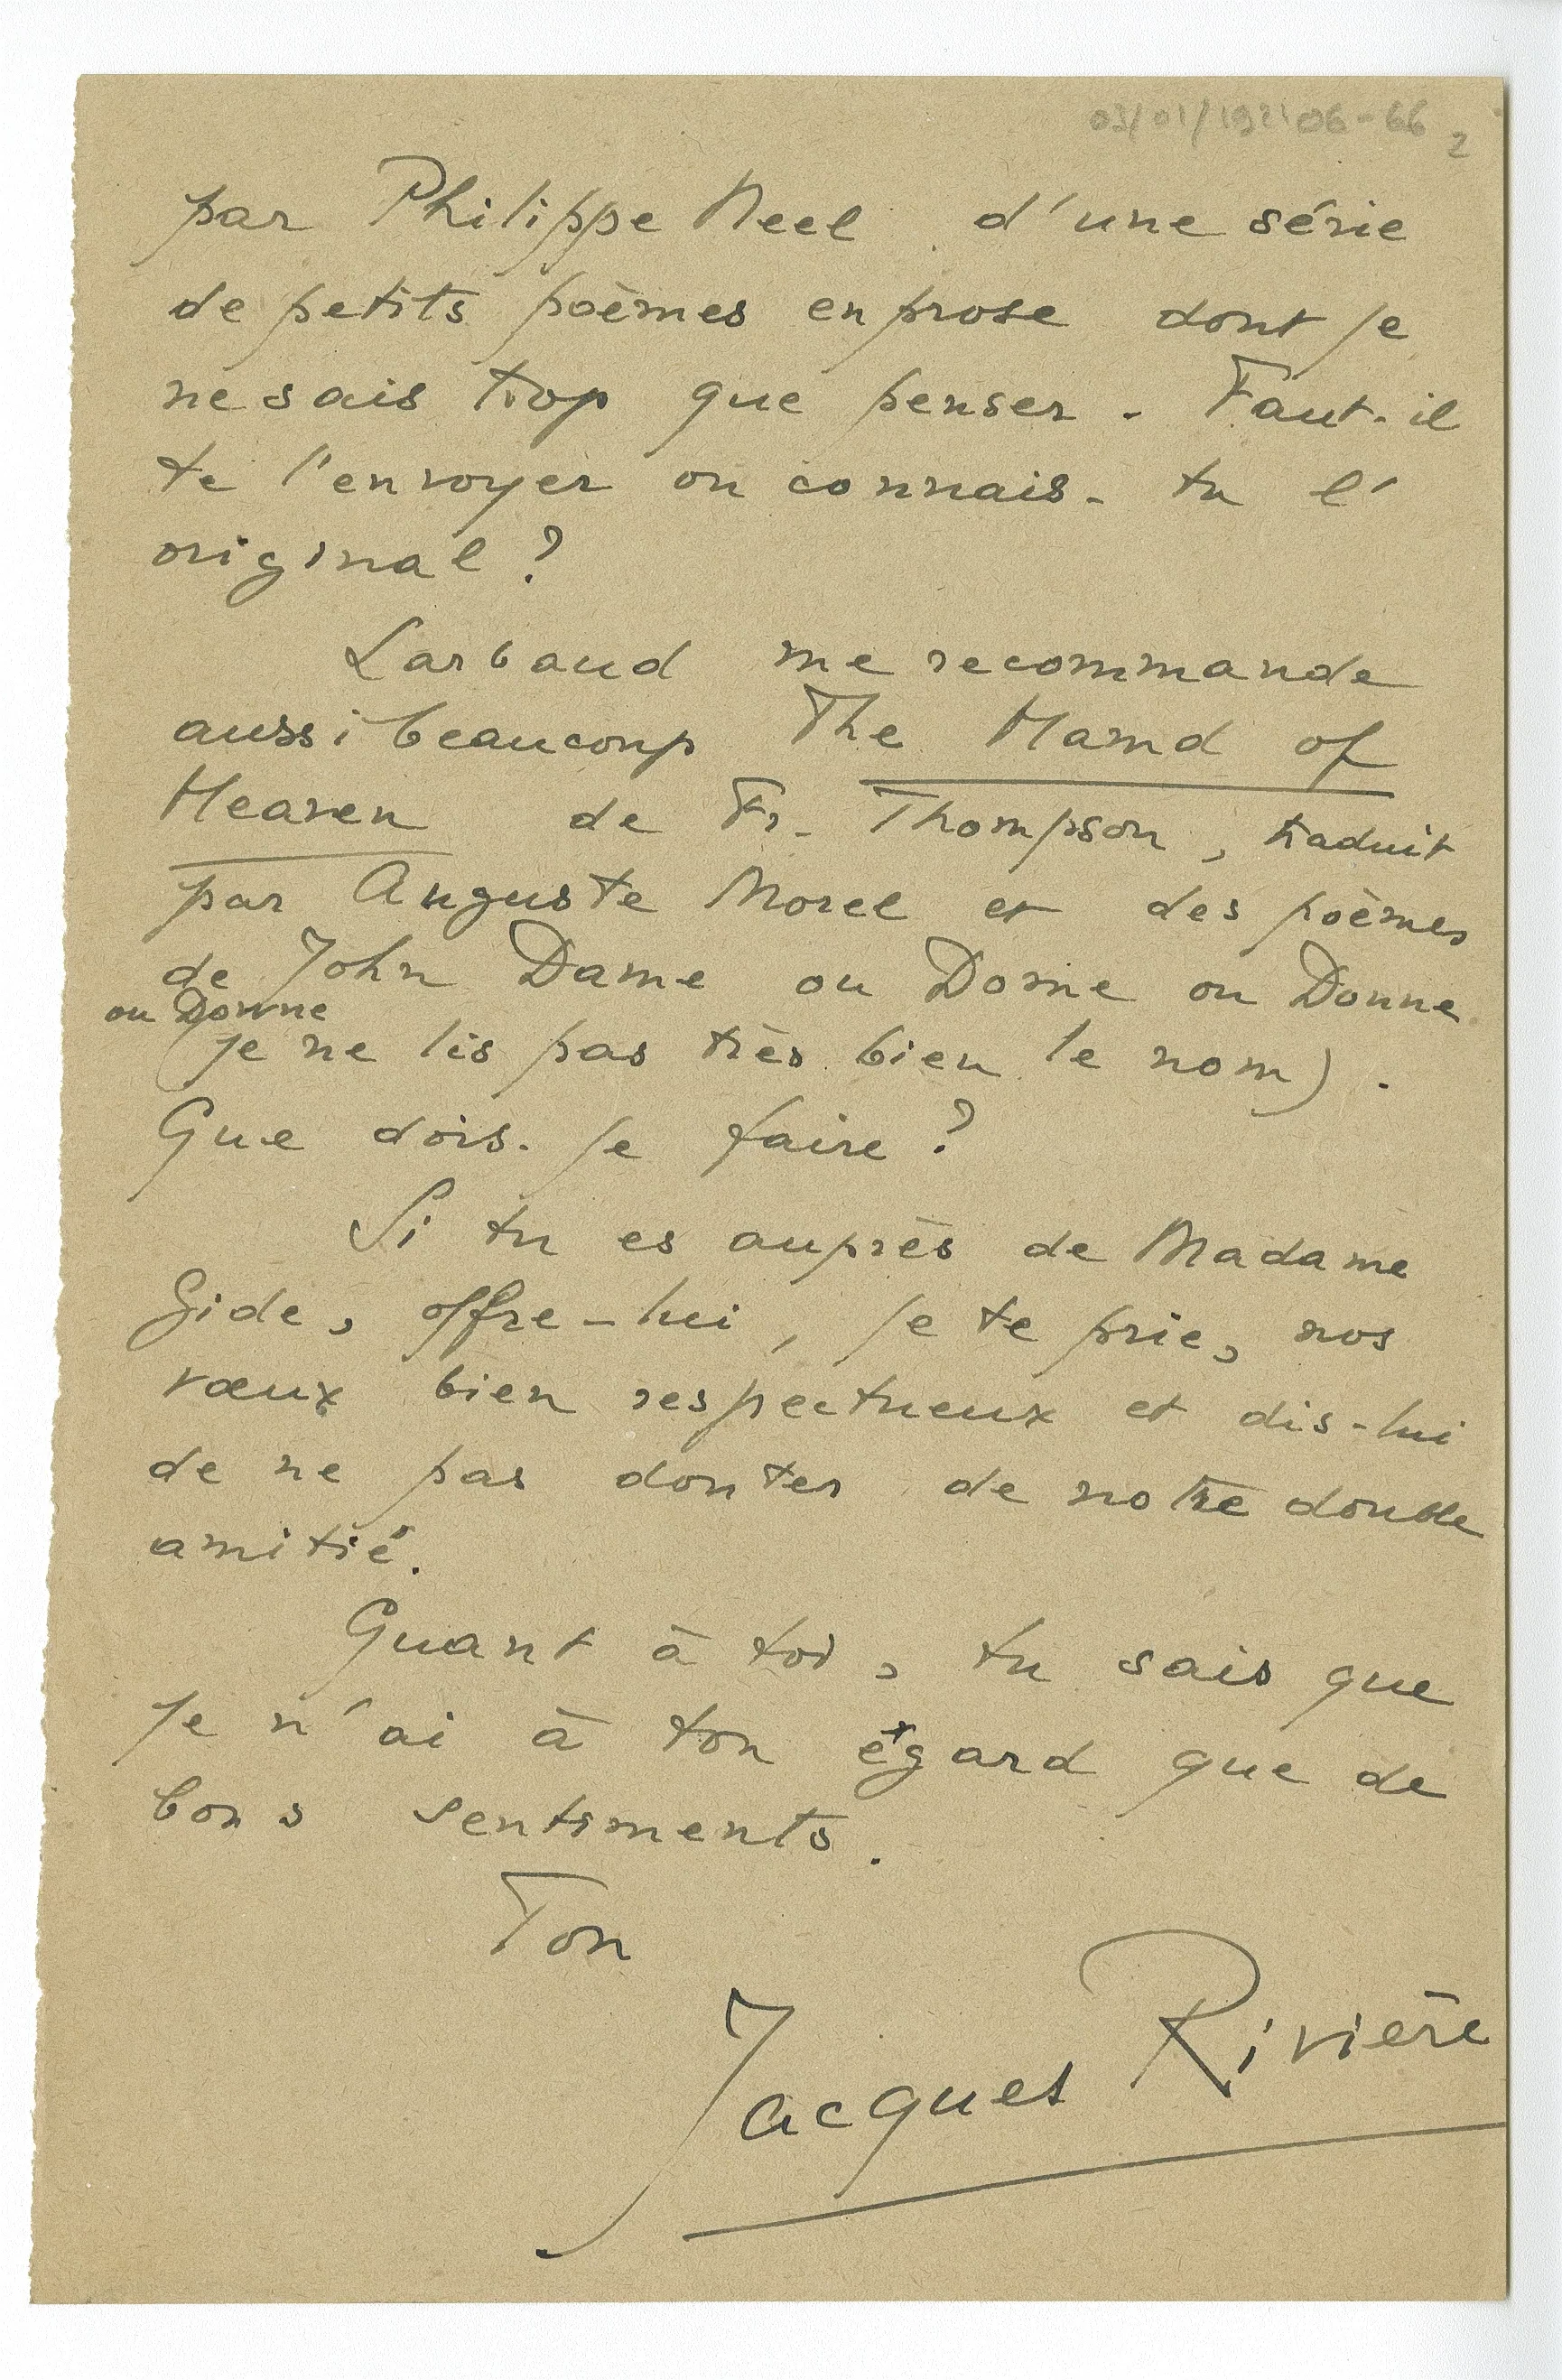 03/01/1921 06-66 2
par Philippe Neel d'une série
de petits poèmes en prose dont je
ne sais trop que penser. Faut-il
te l'envoyer ou connais-tu l'
original ?
Larbaud me recommande
aussi beaucoup The Hamd of
Heaven de Fr. Thompson, traduit
par Auguste Morel et des poèmes
de John Dame ou Dorne ou Donne
ou Downe
(je ne lis pas très bien le nom).
Que dois-je faire ?
Si tu es auprès de Madame
Gide, offre-lui, je te prie, nos
vœux bien respectueux et dis-lui
de ne pas douter de notre double
amitié.
Quant à toi, tu sais que
je n'ai à ton égard que de
bons sentiments.
Ton
Jacques Rivière